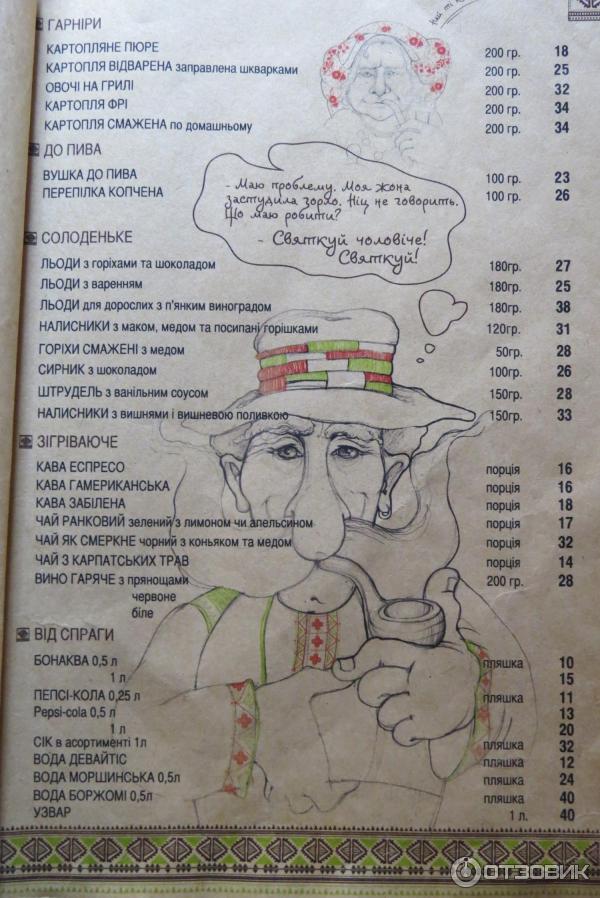 ГАРНІРИ
КАРТОПЛЯНЕ ПЮРЕ 200 гр. 18
КАРТОПЛЯ ВІДВАРЕНА заправлена шкварками 200 гр. 25
ОВОЧІ НА ГРИЛІ 200 гр. 32
КАРТОПЛЯ ФРІ 200 гр. 34
КАРТОПЛЯ СМАЖЕНА по домашньому 200 гр. 34
ДО ПИВА
ВУШКА ДО ПИВА 100 гр. 23
ПЕРЕПІЛКА КОПЧЕНА 100 гр. 26
- Маю проблему. Моя жона
застудила зорло. Ніц не говорить.
Що маю робити?
- Святкуй чоловіче!
Святкуй!
СОЛОДЕНЬКЕ
ЛЬОДИ з горіхами та шоколадом 180гр. 27
ЛЬОДИ з варенням 180гр. 25
ЛЬОДИ для дорослих з п'янким виноградом 180гр. 38
НАЛИСНИКИ з маком, медом та посипані горішками 120гр. 31
ГОРІХИ СМАЖЕНІ з медом 50гр. 28
СИРНИК з шоколадом 100гр. 26
ШТРУДЕЛЬ з ванільним соусом 150гр. 28
НАЛИСНИКИ з вишнями і вишневою поливкою 150гр. 33
ЗІГРІВАЮЧЕ
КАВА ЕСПРЕСО порція 16
КАВА ГАМЕРИКАНСЬКА порція 16
КАВА ЗАБІЛЕНА порція 18
ЧАЙ РАНКОВИЙ зелений з лимоном чи апельсином порція 17
ЧАЙ ЯК СМЕРКНЕ чорний з коньяком та медом порція 32
ЧАЙ З КАРПАТСЬКИХ ТРАВ порція 14
ВИНО ГАРЯЧЕ з прянощами 200 гр. 28
червоне
біле
ВІД СПРАГИ
БОНАКВА 0,5 л пляшка 10
1 л 15
ПЕПСІ-КОЛА 0,25 л пляшка 11
Pepsi-cola 0,5 л 13
1 л 20
СІК в асортименті 1л пляшка 32
ВОДА ДЕВАЙТІС пляшка 12
ВОДА МОРШИНСЬКА 0,5л пляшка 24
ВОДА БОРЖОМІ 0,5л пляшка 40
УЗВАР 1 л. 40
ОТЗОВИК